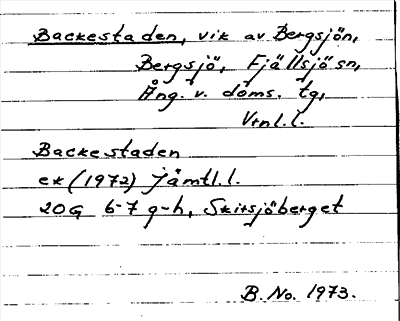 Backestaden, vik av Bergsjön,
Bergsjö, Fjällsjö sn,
Ång. v. doms. tg,
Vtnl.l.
Backestaden
ek (1972) Jämtl.l.
20G 6-7 g-h, Skirsjöberget
B. No. 1973.